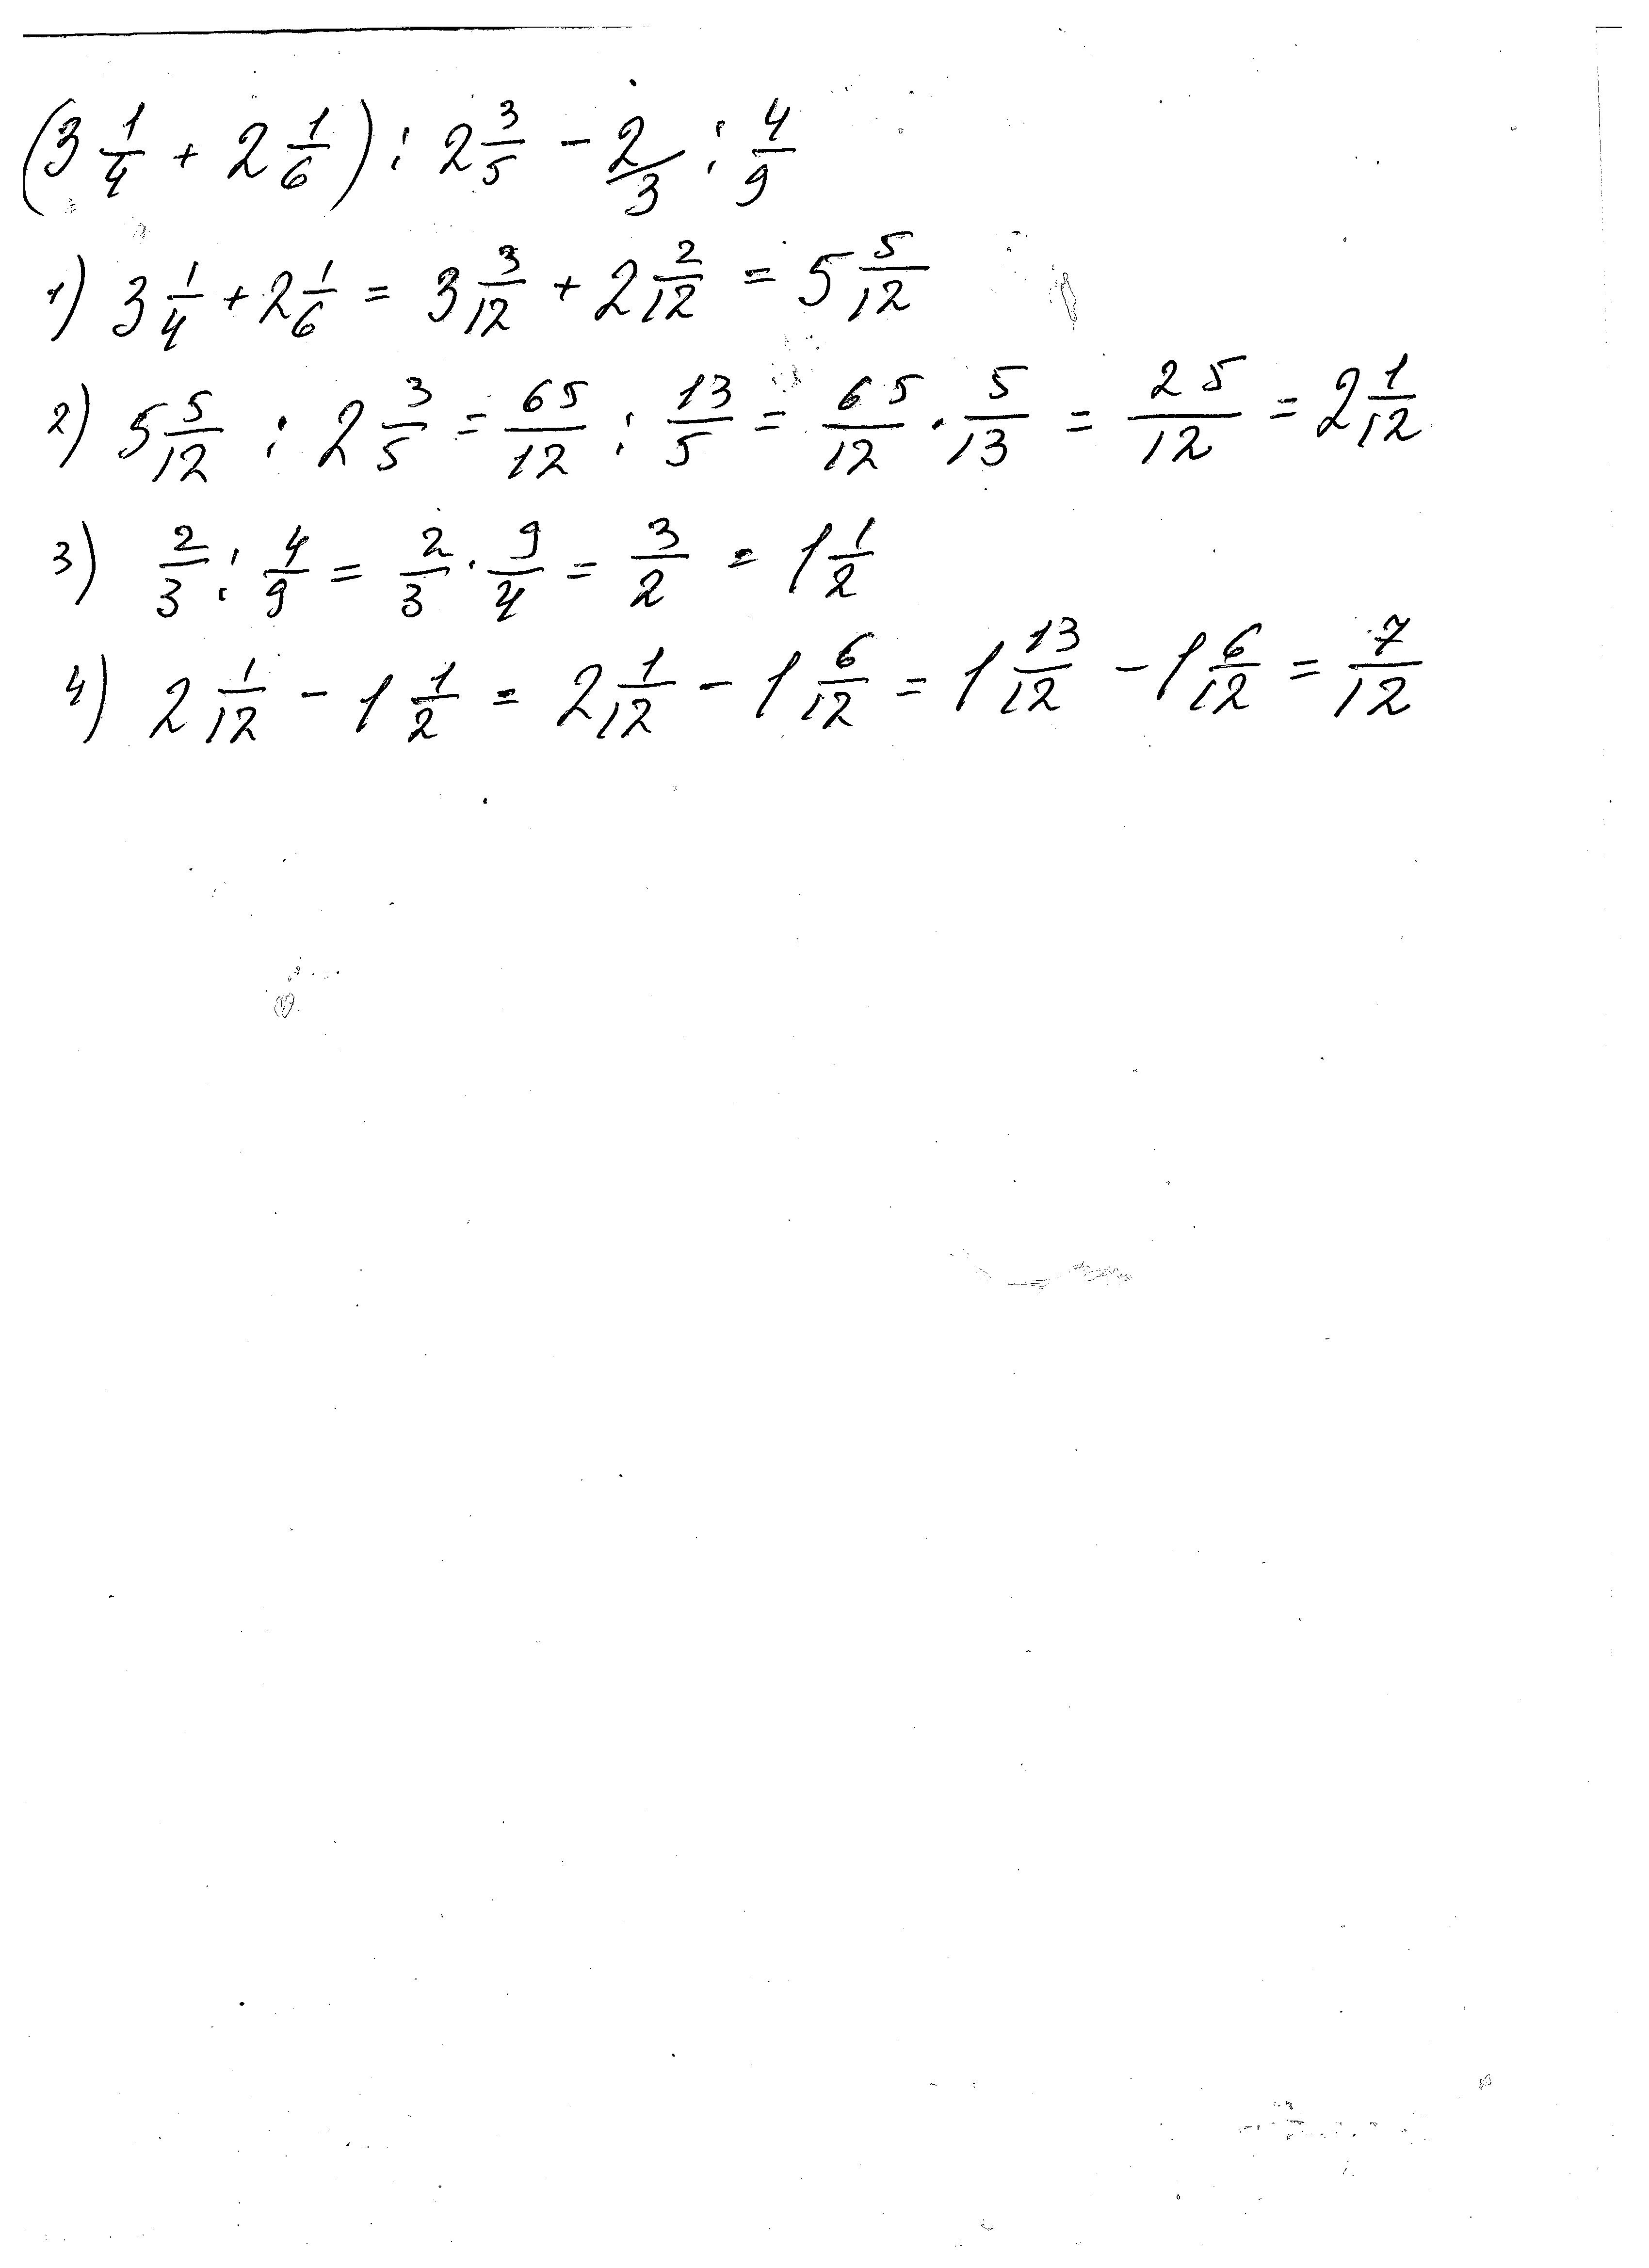 (3 1/4 + 2 1/6) : 2 3/5 - 2/3 : 4/9
1) 3 1/4 + 2 1/6 = 3 3/12 + 2 2/12 = 5 5/12
2) 5 5/12 : 2 3/5 = 65/12 : 13/5 = 65/12 · 5/13 = 25/12 = 2 1/12
3) 2/3 : 4/9 = 2/3 · 9/4 = 3/2 = 1 1/2
4) 2 1/12 - 1 1/2 = 2 1/12 - 1 6/12 = 1 13/12 - 1 6/12 = 7/12